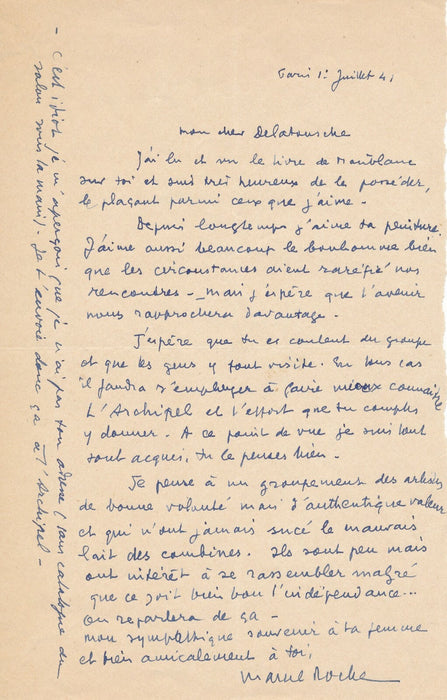 Paris 1er Juillet 41
mon cher Delatousche
J'ai lu et vu le livre de Maublanc
sur toi et suis très heureux de le posséder,
le plaçant parmi ceux que j'aime -
Depuis longtemps j'aime ta peinture.
J'aime aussi beaucoup le bonhomme bien
que les circonstances aient raréfié nos
rencontres - mais j'espère que l'avenir
nous rapprochera davantage -
J'espère que tu es content du groupe
et que les gens y font visite. En tous cas
il faudra s'employer à faire mieux connaître
L'Archipel et l'effort que tu comptes
y donner. A ce point de vue je suis tout
acquis, tu le penses bien -
Je pense à un groupement des artistes
de bonne volonté mais d'authentique valeur
et qui n'ont jamais sucé le mauvais
lait des combines. Ils sont peu mais
ont intérêt à se rassembler malgré
que ce soit bien bon l'indépendance...
on reparlera de ça -
mon sympathique souvenir à ta femme
et bien amicalement à toi,
Marcel Roche
- C'est idiot je m'aperçois que je n'ai pas ton adresse (sans catalogue du
salon sous la main) - Je t'envoie donc ça à l'Archipel -